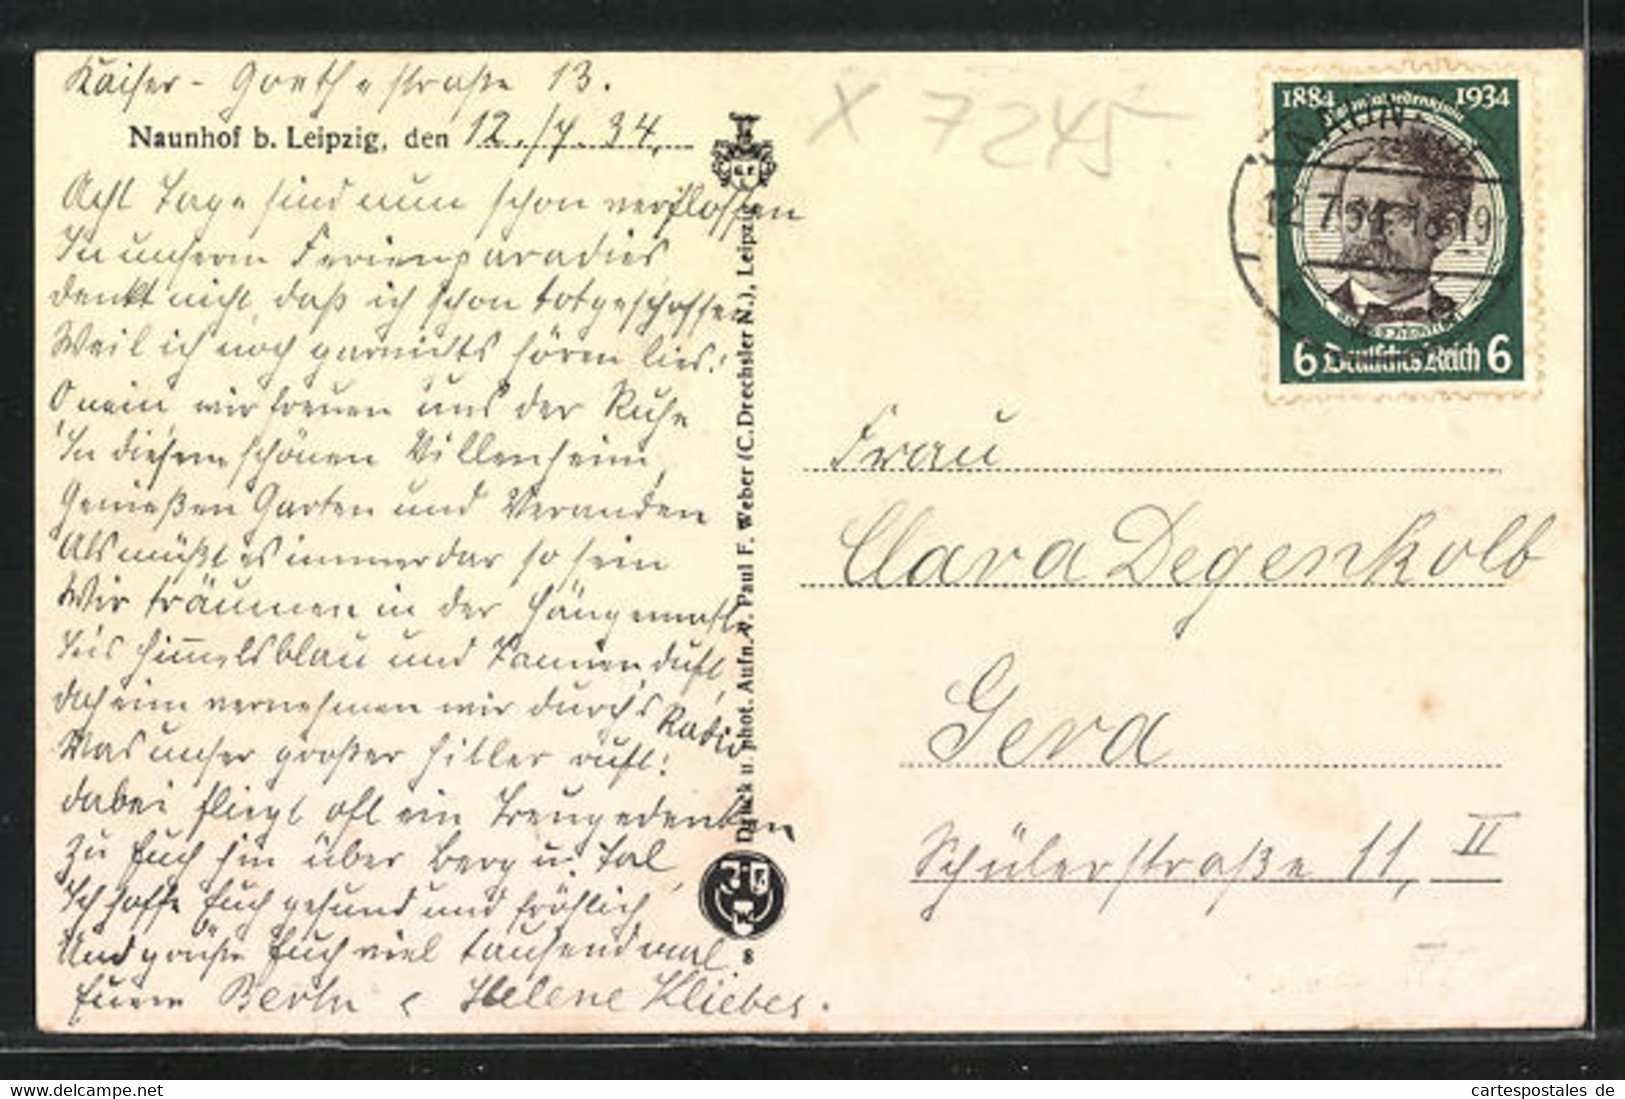 Kaiser - Goethestraße 13.
Naunhof b. Leipzig, den 12./7.34.
Acht Tage sind nun schon verflossen
In unserm Ferienparadies
denkt nicht, daß ich schon totgeschossen
Weil ich noch garnichts hören lies!
O nein wir freuen uns der Ruhe
In diesem schönen Villenheim,
Genießen Garten und Veranden
Als müßt es immerdar so sein
Wir träumen in der Hängematte
bis Himmelsblau und Tannenduft,
daheim vernehmen wir durch's Radio
Was unser großer Hitler ruft!
dabei fliegt oft ein Treugedenken
Zu Euch hin über Berg u. Tal,
Ich hoffe Euch gesund und fröhlich
Und grüße Euch viel tausendmal
Eure Berta & Helene Kliebes.
Druck u. phot. Aufn. v. Paul F. Weber (C. Drechsler N.), Leipzig
8
X 7245
1884 1934
12.7.34. 18-19
6 Deutsches Reich 6
Frau
Clara Degenkolb
Gera
Schülerstraße 11, II
www.delcampe.net
cartespostales de